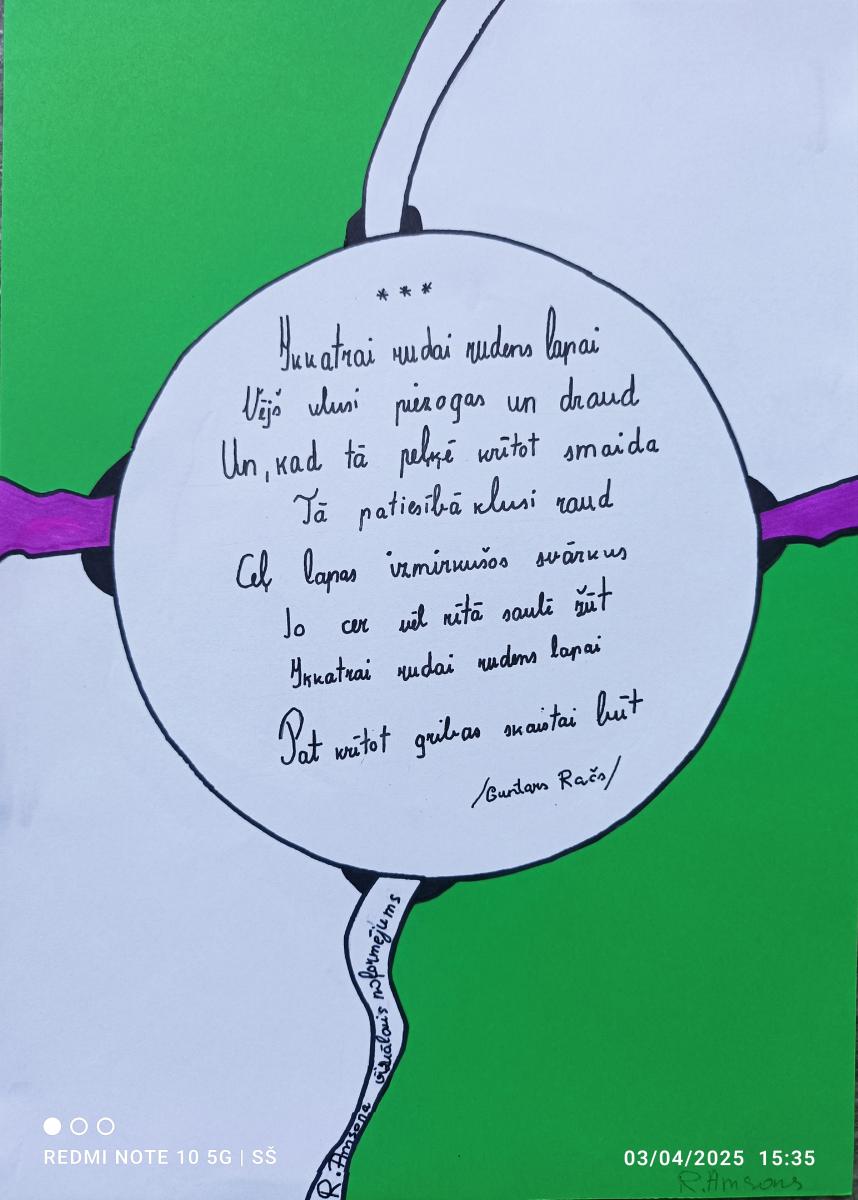 * * *
Ikkatrai rudai rudens lapai
Vējš klusi piezogas un draud
Un, kad tā peļķē krītot smaida
Tā patiesībā klusi raud
Ceļ lapas izmirkušos svārkus
Jo cer vēl rītā saulē žūt
Ikkatrai rudai rudens lapai
Pat krītot gribas skaistai būt
/Guntars Račs/
R. Amsona vizuālais noformējums
REDMI NOTE 10 5G | SŠ
03/04/2025 15:35
R. Amsons